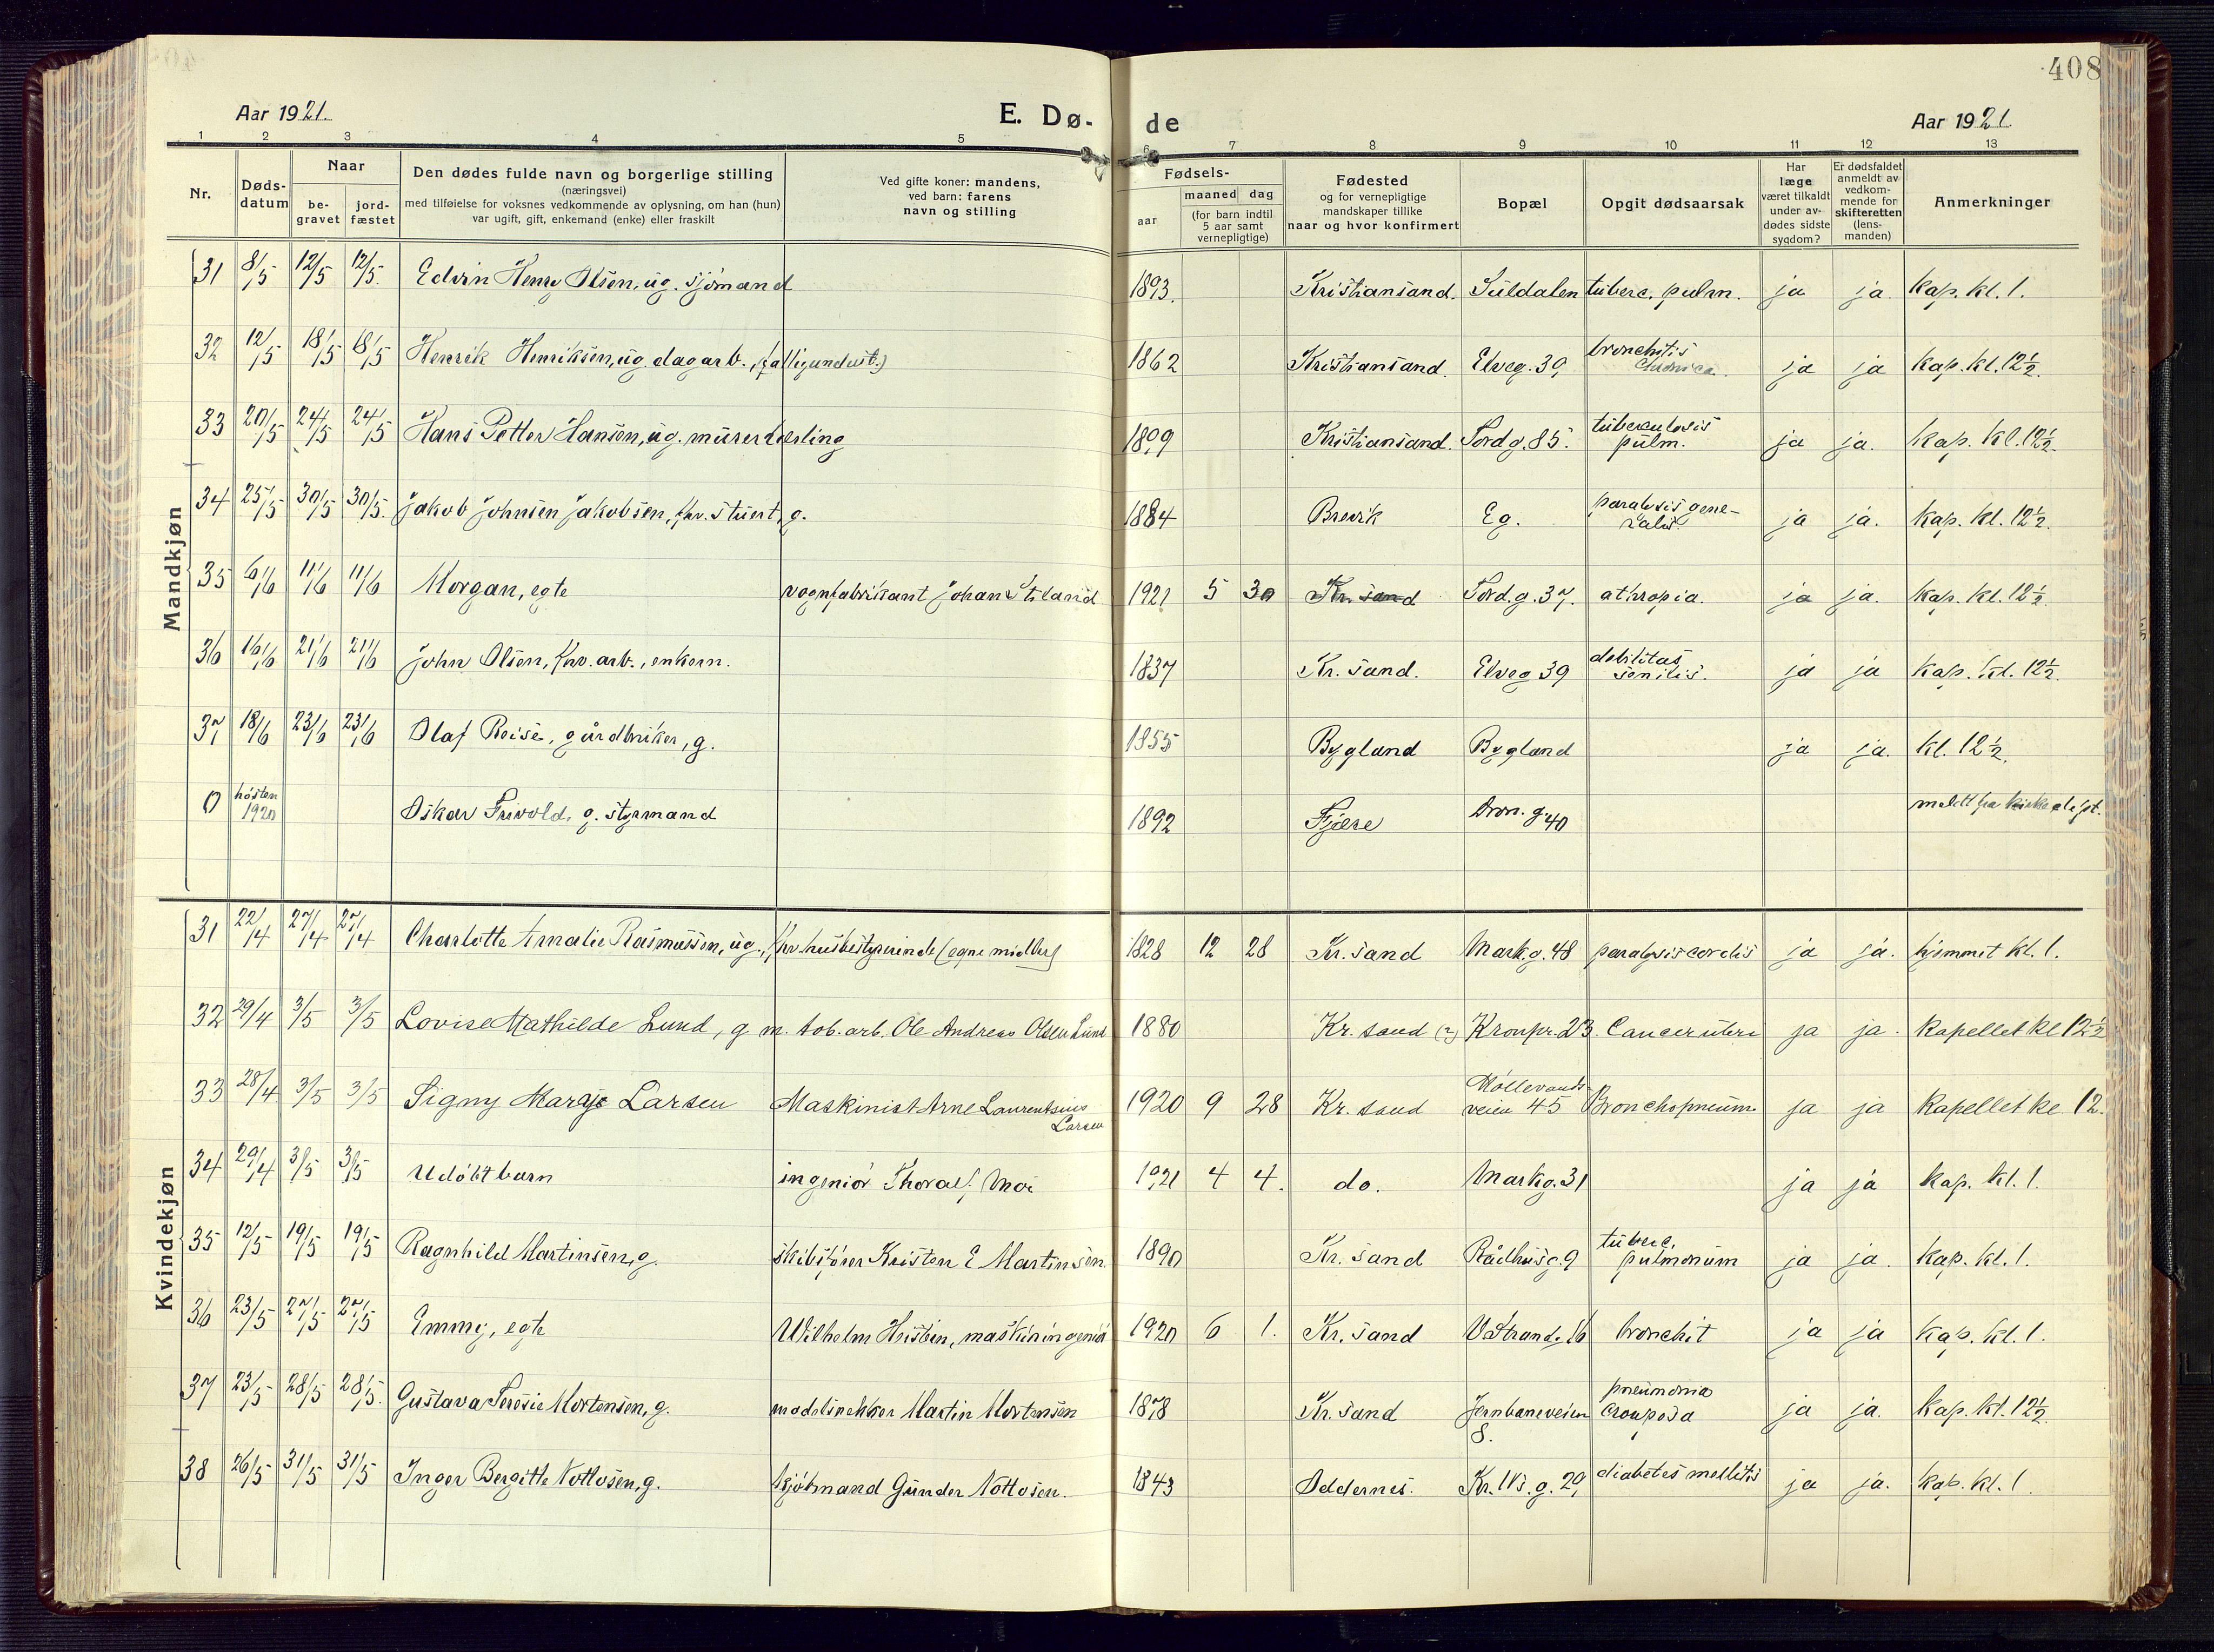 408
Aar 1921.
E. Dø-
de
Aar 1921
1 2 3 4 5 6 7 8 9 10 11 12 13
Nr.
Døds-
datum
Naar
be-
gravet
jord-
fæstet
Den dødes fulde navn og borgerlige stilling
(næringsvei)
med tilføielse for voksnes vedkommende av oplysning, om han (hun)
var ugift, gift, enkemand (enke) eller fraskilt
Ved gifte koner: mandens,
ved barn: farens
navn og stilling
Fødsels-
aar
maaned dag
(for barn indtil
5 aar samt
vernepligtige)
Fødested
og for vernepligtige
mandskaper tillike
naar og hvor konfirmert
Bopæl
Opgit dødsaarsak
Har
læge
været tilkaldt
under av-
dødes sidste
sygdom?
Er dødsfaldet
anmeldt av
vedkom-
mende for
skifteretten
(lens-
manden)
Anmerkninger
Mandkjøn
31 8/5 12/5 12/5. Edvin Henry Olsen, ug. sjømand 1893. Kristiansand. Suldalen tuberc. pulm. ja ja. kap. kl. 1.
32 12/5 18/5 18/5 Henrik Henriksen, ug. dagarb., 1862 Kristiansand. Elveg. 39, bronchitis
chronica. ja ja kap. kl. 12½.
33 20/5 24/5 24/5 Hans Petter Hansen, ug. murerlærling Kristiansand. Tordg. 85. tuberculosis
pulm. ja ja. kap. kl. 12½.
34 25/5 30/5 30/5. Jakob Johnsen Jakobsen, fhv. stuert, g. 1884 Brevik Eg. paralysis gene-
ralis ja ja. kap. kl. 12½.
35 6/6 11/6 11/6 Morgan, egte vognfabrikant Johan Stiland 1921 5 30 Kr. sand Tord.g. 37. athropia. ja ja. kap. kl. 12½.
36 16/6 21/6 21/6 John Olsen, fhv. arb., enkem. 1837 Kr. sand. Elveg 39 debilitas
senilis. ja ja kap. kl. 12½.
37 18/6 23/6 23/6 Olaf Reise, gårdbruker, g. 1855 Bygland Bygland ja ja. kl. 12½.
0 høsten
1920 Oskar Frivold, g. styrmand 1892 Fjære Dron. g. 40 meldt fra kirkedept.
Kvindekjøn
31 22/4 27/4 27/4 Charlotte Amalie Rasmussen, ug., fhv. husbestyrerinde (egne midler) 1828 12 28 Kr. sand Mark.g. 48 paralysis cordis ja ja. hjemmet kl. 1.
32 29/4 3/5 3/5 Lovise Mathilde Lund, g. m. tob. arb. Ole Andreas Olsen Lund 1880 Kr. sand (?) Kronpr. 23. Cancer uteri ja ja. Kapellet kl 12½
33 28/4 3/5 3/5 Signy Marie Larsen Maskinist Arne Laurentsius
Larsen 1920 9 28 Kr. sand Møllevands-
veien 45 Bronchopneum. ja ja Kapellet kl 12.
34 29/4 3/5 3/5 Udøbt barn ingeniør Thoralf Moi 1921 4 4. do. Markg. 31 ja ja kap. kl. 1.
35 12/5 19/5 19/5 Ragnhild Martinsen, g. skibsfører Kristen E Martinsen. 1890 Kr. sand Rådhusg. 9 tuberc.
pulmonum ja ja. kap. kl. 1.
36 23/5 27/5 27/5 Emmy, egte Wilhelm, maskiningeniør 1920 6 1. Kr. sand V. Strandg. 16 bronchit ja ja kap. kl. 1.
37 23/5 28/5 28/5. Gustava Teresie Mortensen, g. modelsnekker Martin Mortensen 1878 Kr. sand Jernbaneveien
8. pneumonia
crouposa ja ja. kap. kl. 12½.
38 26/5 31/5 31/5 Inger Bergitte Nottosen, g. kjøbmand Gunder Nottosen. 1843 Oddernes. Kr. IV's. g. 29, diabetes mellitus ja ja. kap. kl. 1.